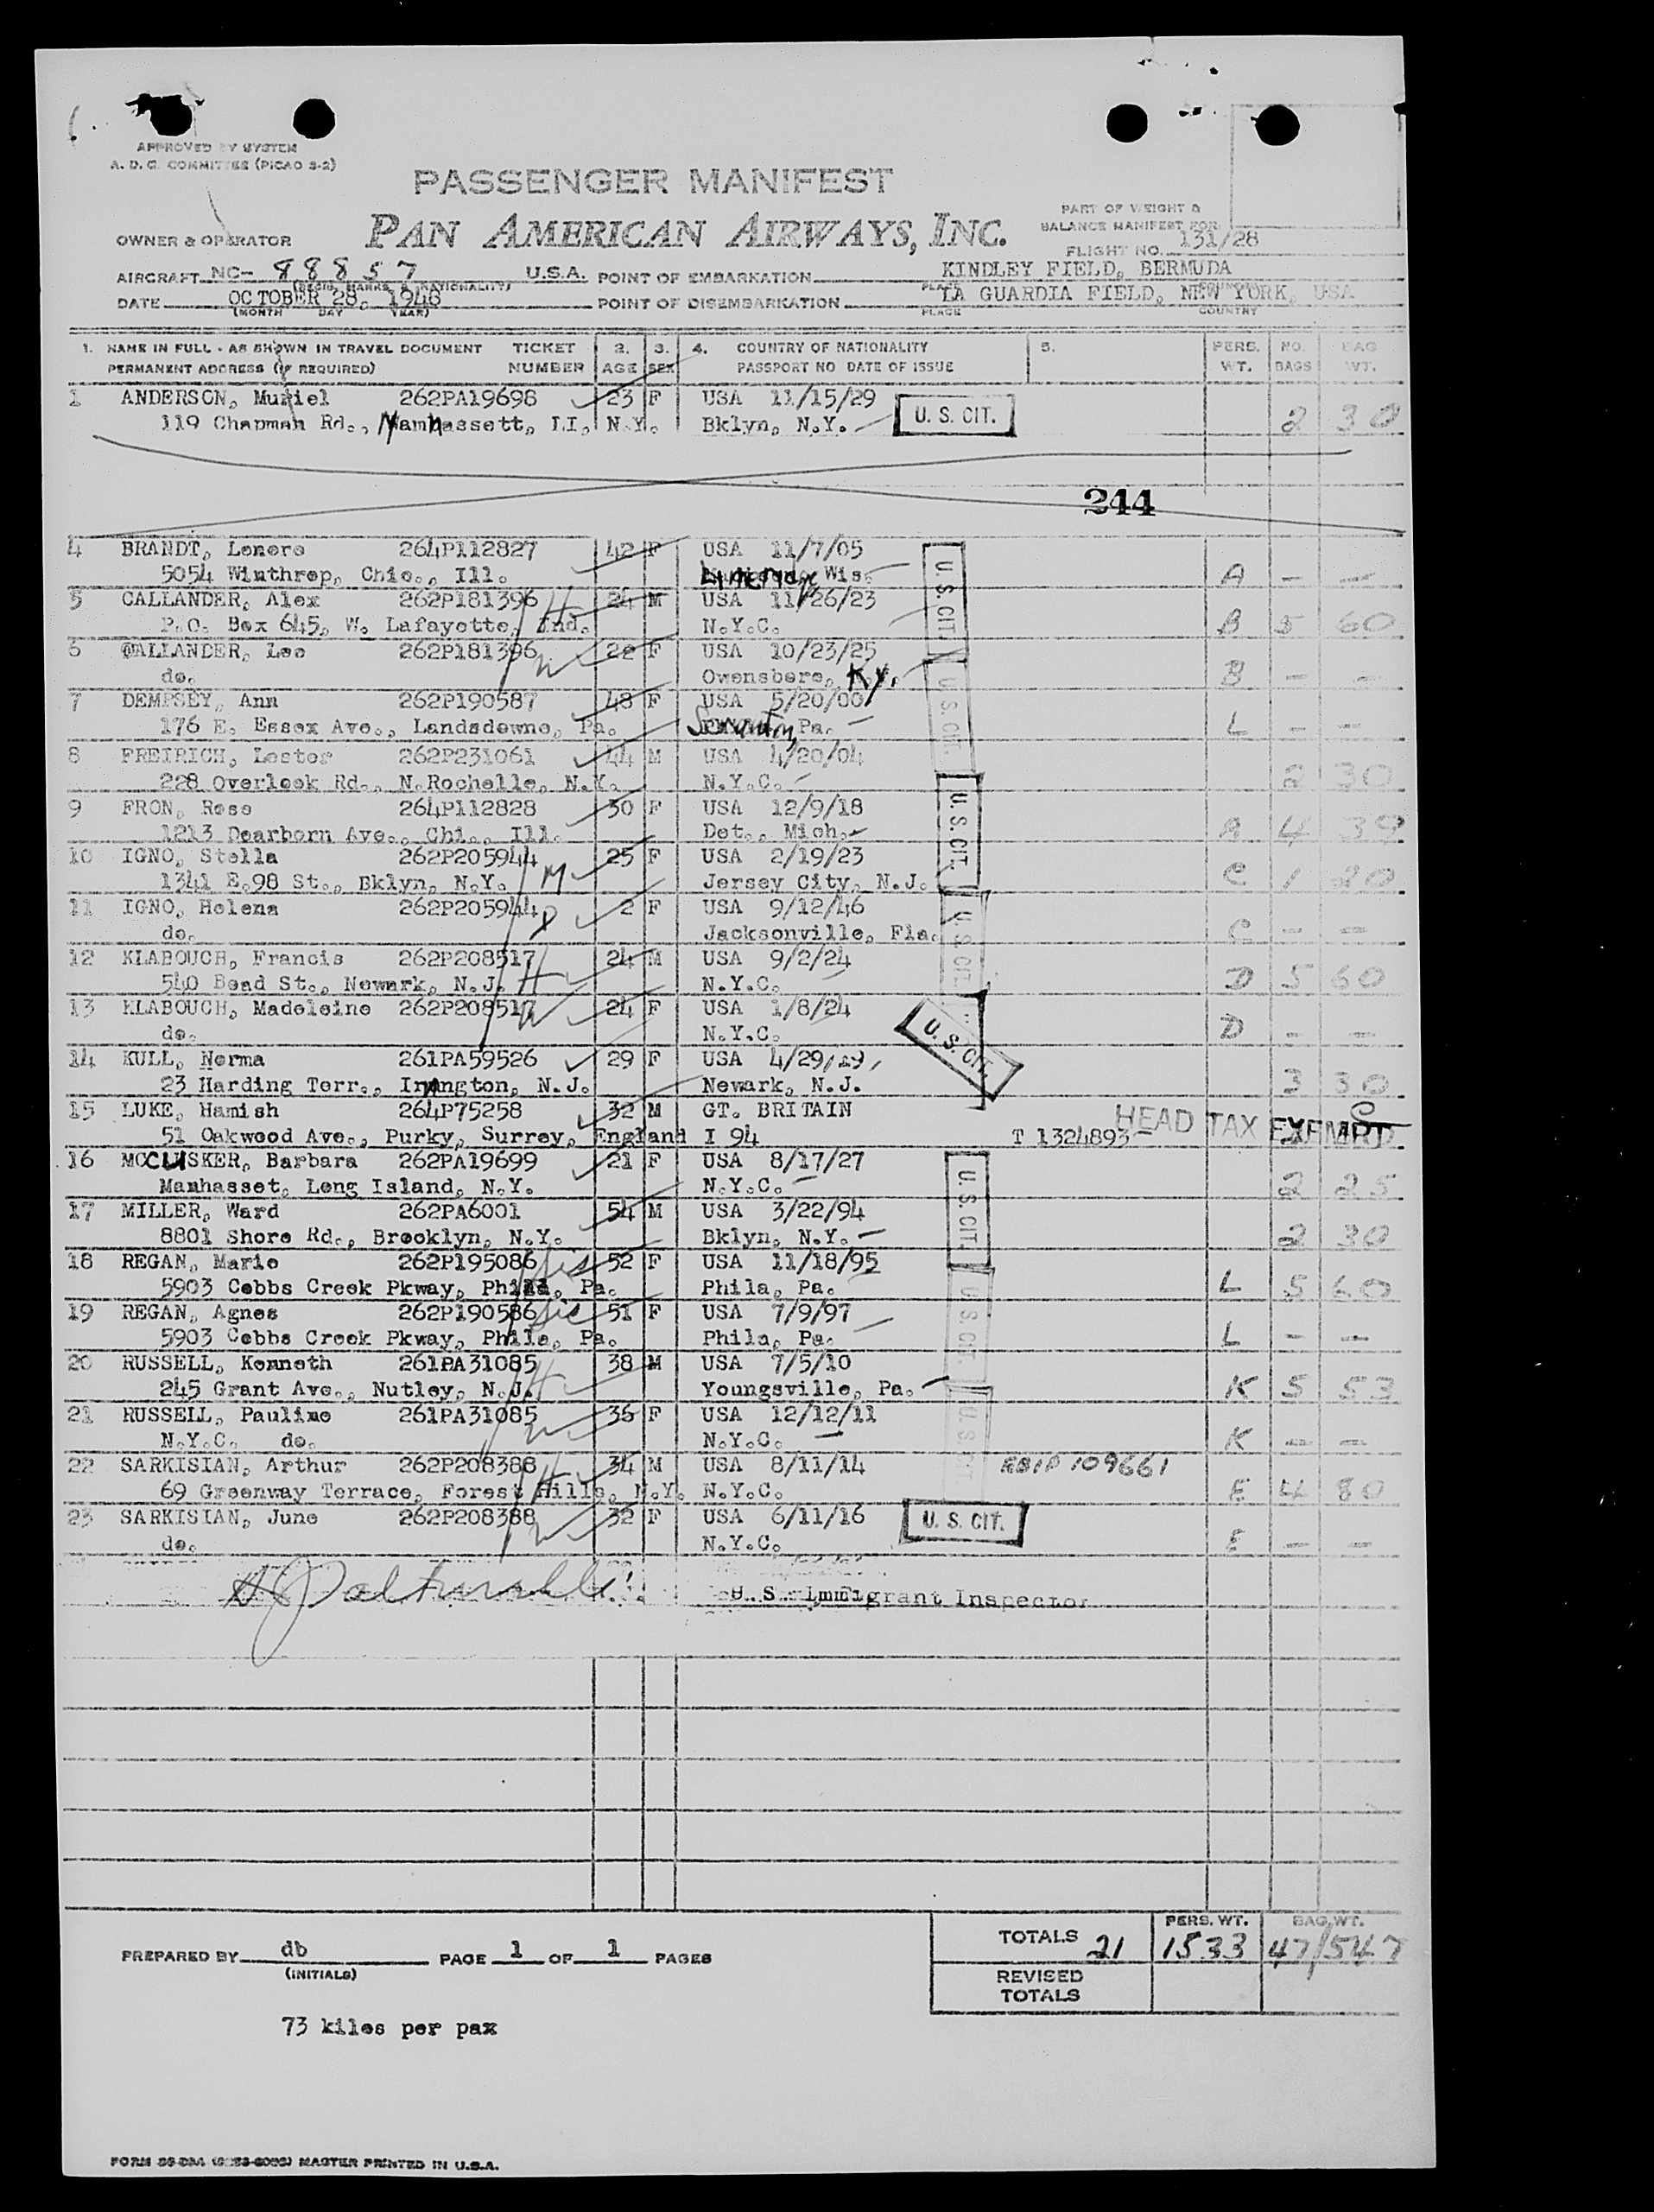 APPROVED BY SYSTEM
A. D. C. COMMITTEE (PICAO 5-2)
PASSENGER MANIFEST
PAN AMERICAN AIRWAYS, INC.
PART OF WEIGHT &
BALANCE MANIFEST FOR
FLIGHT NO. 131/28
OWNER & OPERATOR
AIRCRAFT NC- 88857 U.S.A. POINT OF EMBARKATION KINDLEY FIELD, BERMUDA
(REGIS. MARKS & NATIONALITY) PLACE COUNTRY
DATE OCTOBER 28, 1948 POINT OF DISEMBARKATION LA GUARDIA FIELD, NEW YORK, USA
(MONTH DAY YEAR) PLACE COUNTRY
1. NAME IN FULL - AS SHOWN IN TRAVEL DOCUMENT TICKET 2. 3. 4. COUNTRY OF NATIONALITY 5. PERS. NO. BAG
PERMANENT ADDRESS (IF REQUIRED) NUMBER AGE SEX PASSPORT NO DATE OF ISSUE WT. BAGS WT.
1 ANDERSON, Muriel 262PA19698 23 F USA 11/15/29
119 Chapman Rd., Manhassett, LI, N.Y. Bklyn, N.Y. U. S. CIT. 2 30
244
4 BRANDT, Lenore 264P112827 42 F USA 11/7/05
5054 Winthrop, Chic., Ill. Wis. A - -
5 CALLANDER, Alex 262P181396 H 24 M USA 11/26/23 U. S. CIT.
P.O. Box 645, W. Lafayette, Ind. N.Y.C. B 5 60
6 CALLANDER, Lee 262P181396 W 22 F USA 10/23/25
do. Owensboro, Ky. B - -
7 DEMPSEY, Ann 262P190587 48 F USA 5/20/00 U. S. CIT.
176 E. Essex Ave., Landsdowne, Pa. Scranton, Pa. L - -
8 FREIRICH, Lester 262P231061 44 M USA 4/20/04
228 Overlook Rd., N.Rochelle, N.Y. N.Y.C. 2 30
9 FRON, Rose 264P112828 30 F USA 12/9/18 U. S. CIT.
1213 Dearborn Ave., Chi., Ill. Det., Mich. A 4 39
10 IGNO, Stella 262P205944 25 F USA 2/19/23
1341 E.98 St., Bklyn, N.Y. M Jersey City, N.J. C 1 20
11 IGNO, Helena 262P205944 D 2 F USA 9/12/46 U. S. CIT.
do. Jacksonville, Fla. C - -
12 KLABOUCH, Francis 262P208517 24 M USA 9/2/24
540 Boad St., Newark, N.J. H N.Y.C. D 5 60
13 KLABOUCH, Madeleine 262P208517 W 24 F USA 1/8/24
do. N.Y.C. U. S. CIT. D - -
14 KULL, Norma 261PA59526 29 F USA 4/29/19
23 Harding Terr., Irvington, N.J. Newark, N.J. 3 30
15 LUKE, Hamish 264P75258 32 M GT. BRITAIN HEAD TAX EXEMPT
51 Oakwood Ave., Purky, Surrey, England I 94 T 1324893
16 MCCUSKER, Barbara 262PA19699 21 F USA 8/17/27
Manhasset, Long Island, N.Y. N.Y.C. U. S. CIT. 2 25
17 MILLER, Ward 262PA6001 54 M USA 3/22/94
8801 Shore Rd., Brooklyn, N.Y. Bklyn, N.Y. 2 30
18 REGAN, Marie 262P195086 sis 52 F USA 11/18/95
5903 Cobbs Creek Pkway, Phila, Pa. Phila, Pa. U. S. CIT. L 5 60
19 REGAN, Agnes 262P190586 sis 51 F USA 7/9/97
5903 Cobbs Creek Pkway, Phila, Pa. Phila, Pa. L - -
20 RUSSELL, Kenneth 261PA31085 H 38 M USA 7/5/10
245 Grant Ave., Nutley, N.J. Youngsville, Pa. K 5 53
21 RUSSELL, Pauline 261PA31085 W 36 F USA 12/12/11 U. S. CIT.
N.Y.C. do. N.Y.C. K - -
22 SARKISIAN, Arthur 262P208388 H 34 M USA 8/11/14 109661
69 Greenway Terrace, Forest Hills, N.Y. N.Y.C. E 4 80
23 SARKISIAN, June 262P208388 W 32 F USA 6/11/16 U. S. CIT.
do. N.Y.C. E - -
U. S. Immigrant Inspector
PREPARED BY db PAGE 1 OF 1 PAGES
(INITIALS)
PERS. WT. BAG WT.
TOTALS 21 1533 47/547
REVISED
TOTALS
73 kilos per pax
MASTER PRINTED IN U.S.A.